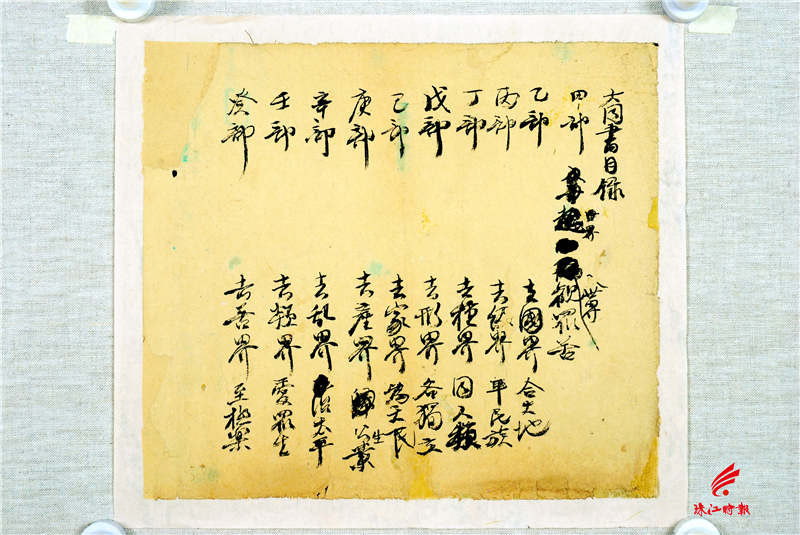 大同書目錄
甲部 世界觀眾苦
乙部 去國界 合大地
丙部 去級界 平民族
丁部 去種界 同人類
戊部 去形界 各獨立
己部 去家界 為天民
庚部 去產界 公生業
辛部 去乱界 治太平
壬部 去類界 愛眾生
癸部 去苦界 至極樂
珠江時報